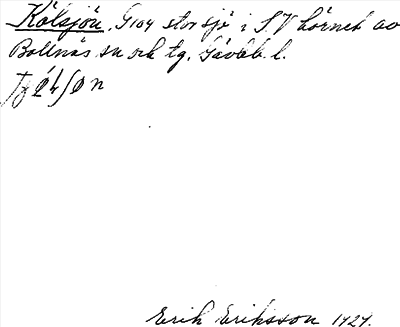 Kölsjön. G104 stor sjö i S.V hörnet av
Bollnäs sn och tg. Gävleb. l.
Erik Eriksson 1929.